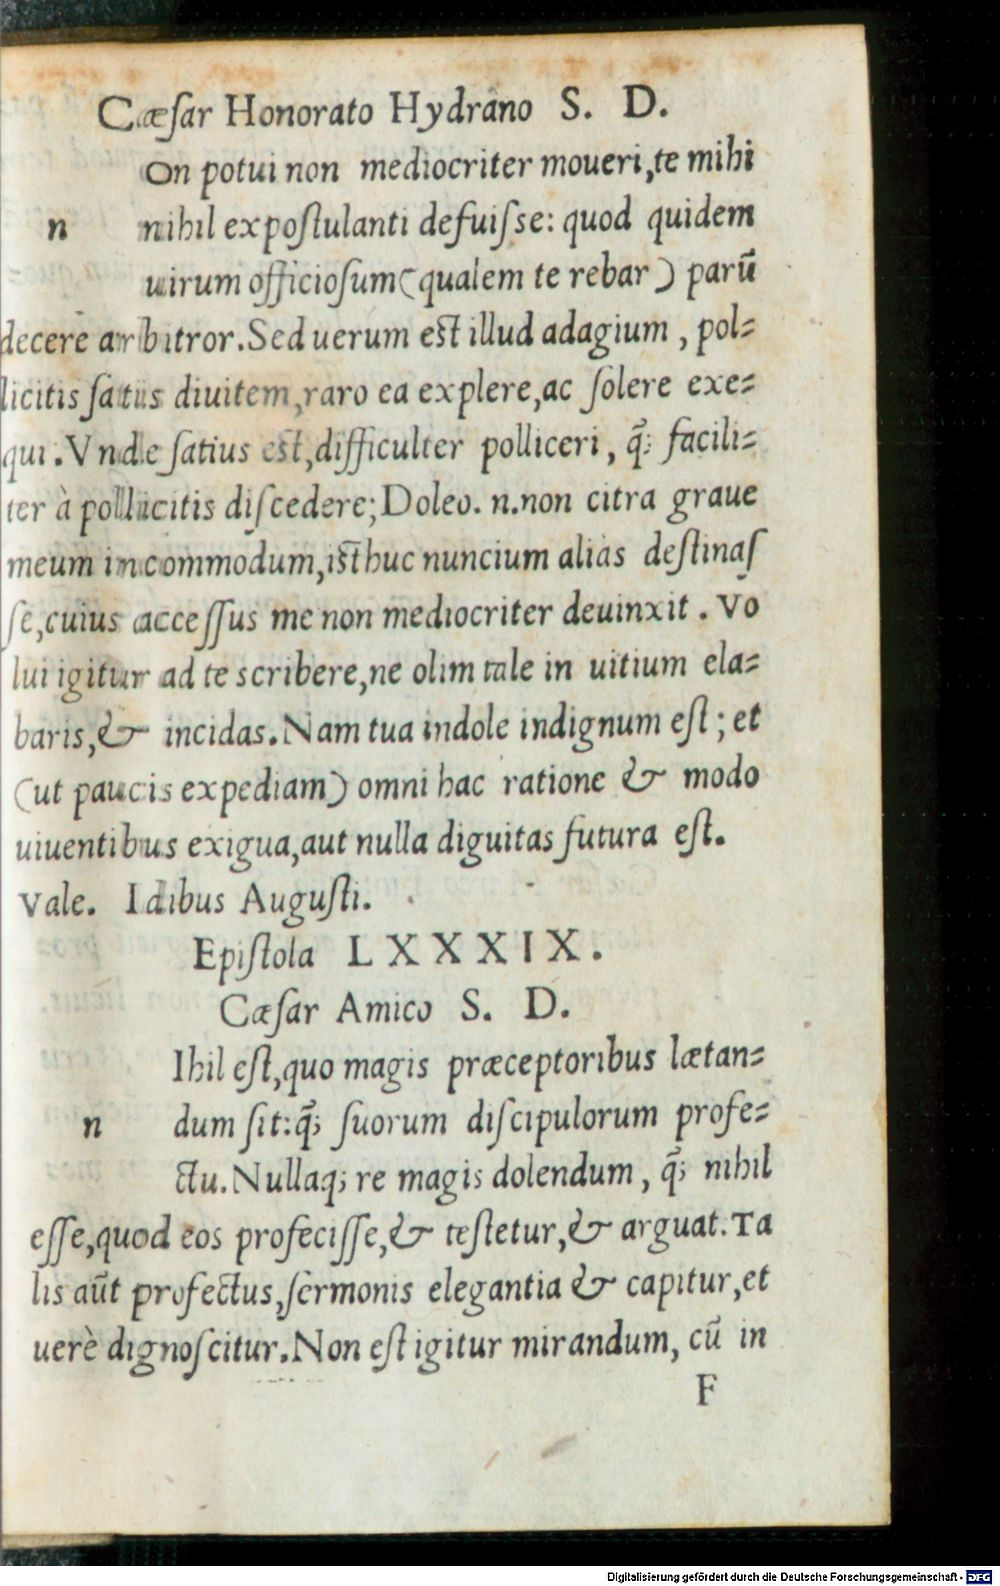 Cæſar Honorato Hydrano S. D.
On potui non mediocriter moueri,te mihi
n nihil expoſtulanti defuiſse: quod quidem
uirum officioſum(qualem te rebar) parū
decere arbitror.Sed uerum eſt illud adagium , pol⸗
licitis ſatis diuitem,raro ea explere,ac ſolere exe⸗
qui.Vnde ſatius eſt,difficulter polliceri, q̃; facili⸗
ter à pollicitis diſcedere;Doleo. n.non citra graue
meum incommodum,iſthuc nuncium alias deſtinaſ
ſe,cuius acceſſus me non mediocriter deuinxit. Vo
lui igitur ad te scribere,ne olim tale in uitium ela⸗
baris,& incidas.Nam tua indole indignum eſt; et
(ut paucis expediam) omni hac ratione & modo
uiuentibus exigua,aut nulla diguitas futura eſt.
Vale. Idibus Auguſti.
Epiſtola LXXXIX.
Cæſar Amico S. D.
Ihil eſt,quo magis præceptoribus lætan⸗
n dum ſit:q̃; ſuorum diſcipulorum profe⸗
ctu.Nullaq; re magis dolendum, q̃; nihil
eſſe,quod eos profeciſſe,& teſtetur,& arguat.Ta
lis aūt profectus,ſermonis elegantia & capitur,et
uerè dignoſcitur.Non eſt igitur mirandum, cū in
F
Digitalisierung gefördert durch die Deutsche Forschungsgemeinschaft - DFG